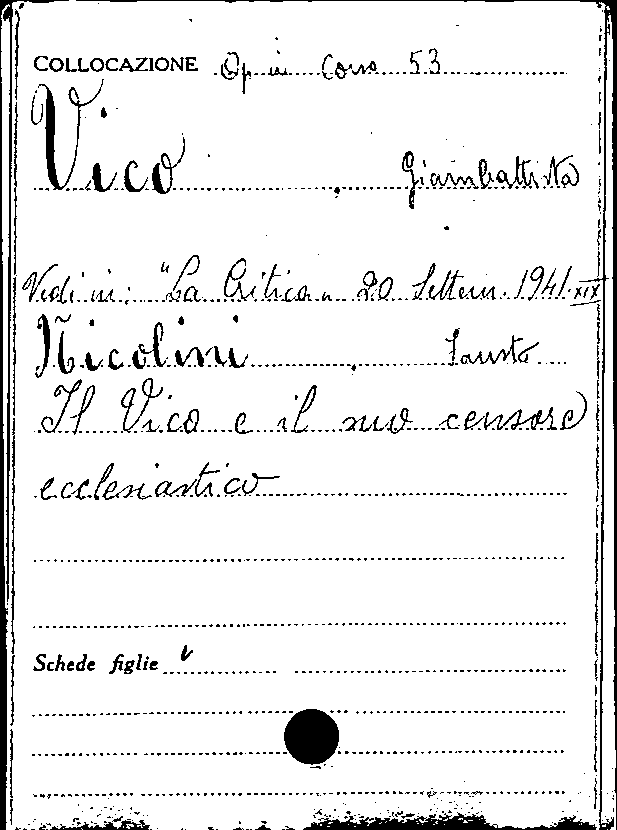 COLLOCAZIONE Op in Corso 53
Vico, Giambattista
Vedi in: "La Critica" 20 Settem. 1941.XIX
Nicolini, Fausto
Il Vico e il suo censore
ecclesiastico
Schede figlie